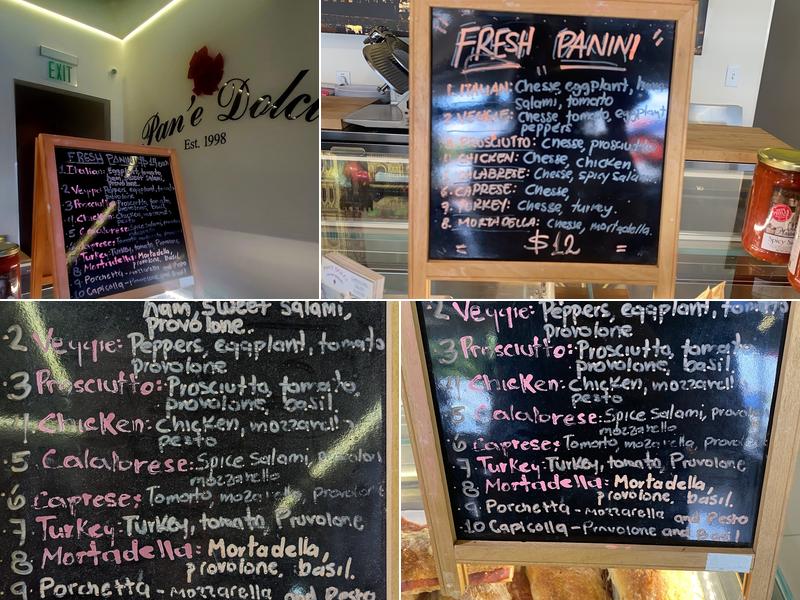 EXIT
Pan'e Dolci
Est. 1998
FRESH PANINI $14
1. Italian: Eggplant, tomato,
ham, sweet salami,
provolone.
2 Veggie: Peppers, eggplant, tomato
provolone
3 Prosciutto: Prosciutto, tomato,
provolone, basil.
4 Chicken: Chicken, mozzarella
pesto
5 Calabrese:
6 Caprese:
7 Turkey: Turkey, tomato, Provolone
8 Mortadella: Mortadella,
provolone, basil.
9 Porchetta - mozzarella and Pesto
10 Capicolla -
"FRESH PANINI"
1. ITALIAN: Chesse, eggplant, ham
salami, tomato
2. VEGGIE: Chesse tomato, eggplant
peppers
PROSCIUTTO: chesse, prosciutto
CHICKEN: Chesse, chicken
CALABRESE: Chesse, spicy Sala
6. CAPRESE: Chesse,
7. TURKEY: Chesse, turkey.
8. MORTADELLA: chesse, mortadella.
= $12 =
Spicy
ham, sweet salami,
provolone.
·2 Veggie: Peppers, eggplant, tomato
provolone
·3 Prosciutto: Prosciutto, tomato,
provolone, basil.
Chicken: Chicken, mozzarell
pesto
·5 Calabrese: Spice Salami, provolon
mozzarella
·6 Caprese: Tomorto, mozarella, provolon
7 Turkey: Turkey, tomato, Provolone
·8 Mortadella: Mortadella,
provolone, basil.
9 Porchetta - mozzarella and Pesto
2 Veggie: Peppers, eggplant, tomato
provolone
·3 Prosciutto: Prosciutto, tomato,
provolone, basil.
Chicken: Chicken, mozzarell
pesto
5 Calabrese: Spice Salami, provolo
mozzarella
·6 Caprese: Tomorto, mozarella, provolo
7 Turkey: Turkey, tomato, Provolone
8 Mortadella: Mortadella,
provolone, basil.
9 Porchetta - mozzarella and Pesto
·10 Capicolla - Provolone and Basil